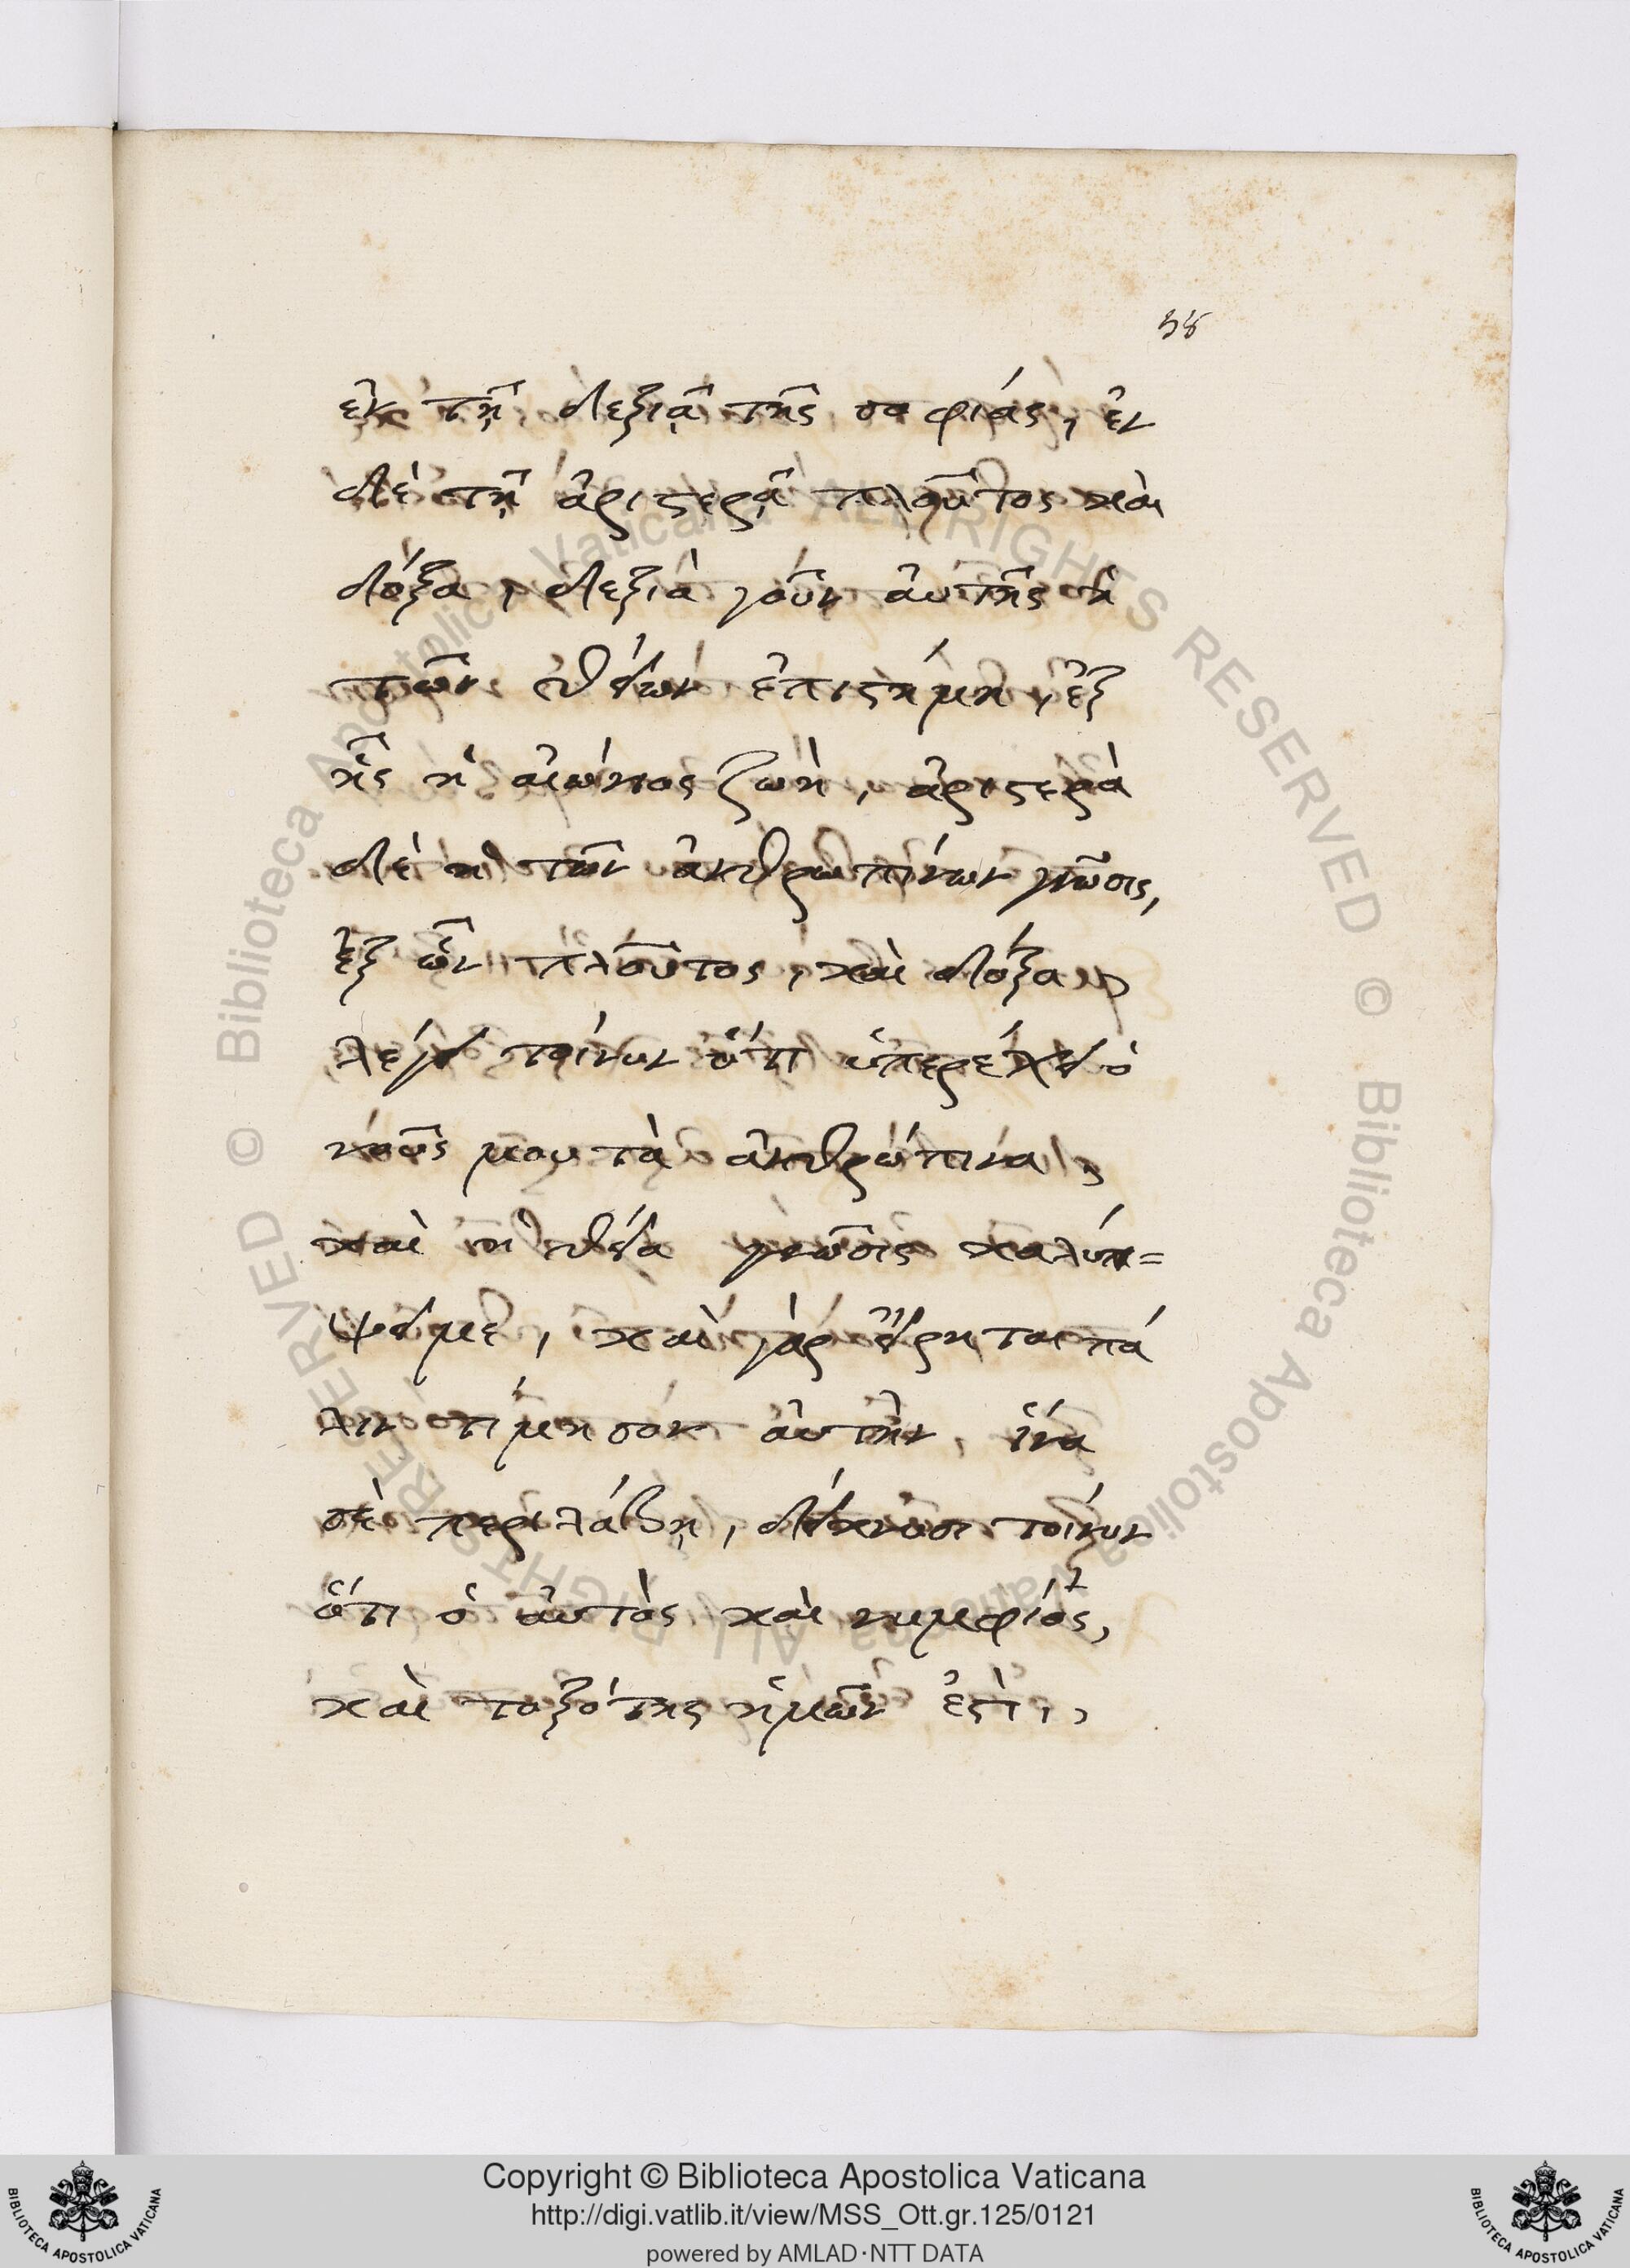 58
ἐκ τῇ δεξιᾷ τῆς σοφίας, ἐν
δὲ τῇ ἀριστερᾷ πλοῦτος καὶ
δόξα, δεξιὰ γοῦν αὐτῆς ἡ
τῶν θείων ἐπιστήμη, ἐξ
ἧς ἡ αἰώνιος ζωὴ, ἀριστερὰ
δὲ ἡ τῶν ἀνθρωπίνων γνῶσις,
ἐξ ὧν πλοῦτος, καὶ δόξα,
λέγει τοίνυν ὅτι ὑπερέχει ὁ
νοῦς μου τὰ ἀνθρώπινα,
καὶ ἡ θεία γνῶσις καλύπ=
ψει με, καὶ γὰρ εἴρηται πά
λιν τίμησον αὐτὴν, ἵνα
σὲ περιλάβῃ, δείκνυσι τοίνυν
ὅτι ὁ αὐτὸς καὶ νυμφίος,
καὶ τοξότης ἡμῶν ἐστὶ,
Copyright © Biblioteca Apostolica Vaticana
http://digi.vatlib.it/view/MSS_Ott.gr.125/0121
powered by AMLAD·NTT DATA
BIBLIOTECA APOSTOLICA VATICANA
BIBLIOTECA APOSTOLICA VATICANA
© Biblioteca Apostolica Vaticana ALL RIGHTS RESERVED © Biblioteca Apostolica Vaticana ALL RIGHTS RESERVED